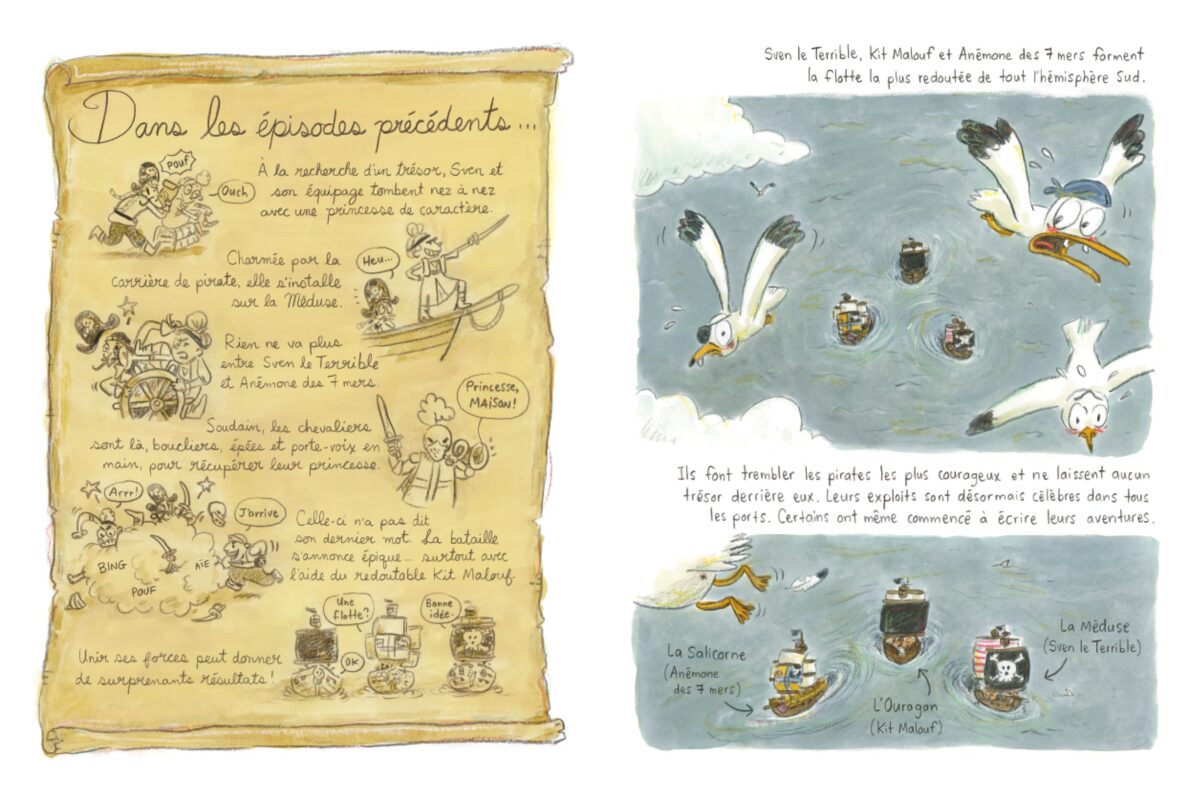 Dans les épisodes précédents...
POUF
Ouch
À la recherche d'un trésor, Sven et
son équipage tombent nez à nez
avec une princesse de caractère.
Charmée par la
carrière de pirate, elle s'installe
sur la Méduse.
Heu...
Rien ne va plus
entre Sven le Terrible
et Anémone des 7 mers.
Princesse,
MAISON!
Soudain, les chevaliers
sont là, boucliers, épées et porte-voix en
main, pour récupérer leur princesse.
Arrr!
J'arrive
BING
AÏE
POUF
Celle-ci n'a pas dit
son dernier mot. La bataille
s'annonce épique... surtout avec
l'aide du redoutable Kit Malouf.
Une
flotte?
Bonne
idée.
OK
Unir ses forces peut donner
de surprenants résultats!
Sven le Terrible, Kit Malouf et Anémone des 7 mers forment
la flotte la plus redoutée de tout l'hémisphère Sud.
Ils font trembler les pirates les plus courageux et ne laissent aucun
trésor derrière eux. Leurs exploits sont désormais célèbres dans tous
les ports. Certains ont même commencé à écrire leurs aventures.
La Salicorne
(Anémone
des 7 mers)
L'Ouragan
(Kit Malouf)
La Méduse
(Sven le Terrible)